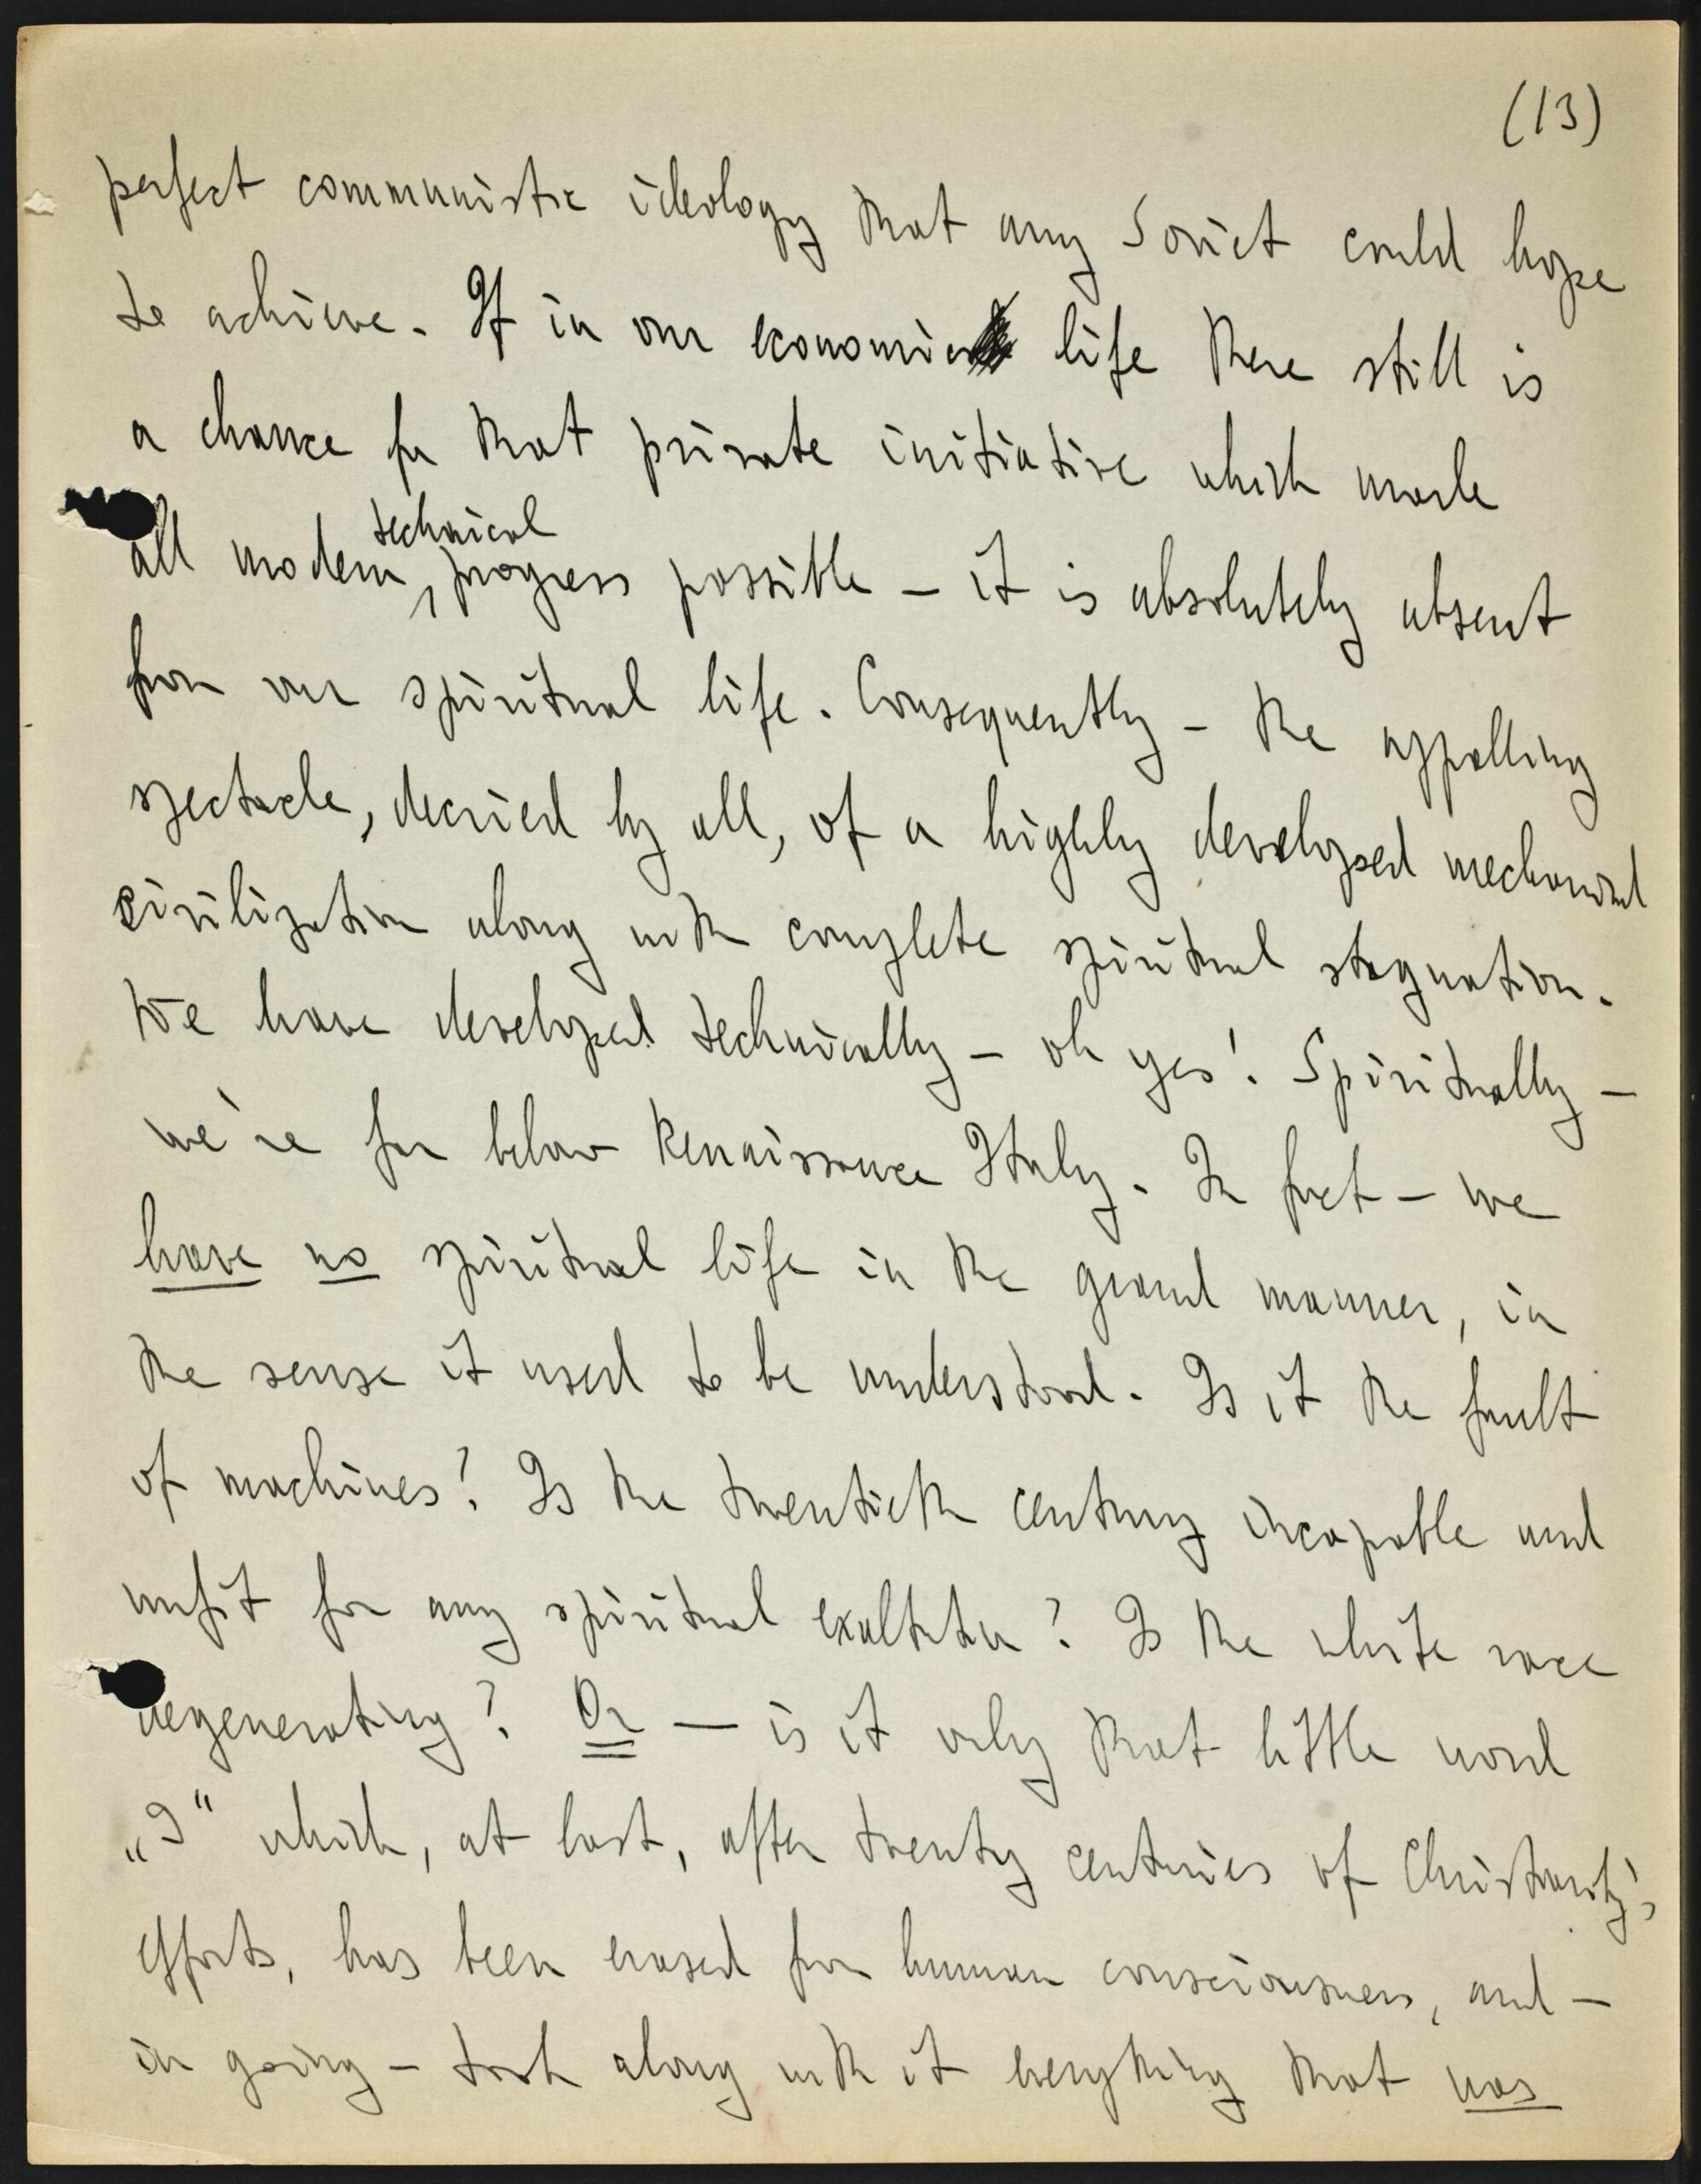 (13)
perfect communistic ideology that any Soviet could hope
to achieve. If in our economic life there still is
a chance for that private initiative which made
technical
all modern progress possible – it is absolutely absent
from our spiritual life. Consequently – the appalling
spectacle, decried by all, of a highly developed mechanical
civilization along with complete spiritual stagnation.
We have developed technically – oh yes! Spiritually –
we're far below Renaissance Italy. In fact – we
have no spiritual life in the grand manner, in
the sense it used to be understood. Is it the fault
of machines? Is the twentieth century incapable and
unfit for any spiritual exaltation? Is the white race
degenerating? Or — is it only that little word
„I“ which, at last, after twenty centuries of Christianity's
efforts, has been erased from human consciousness, and –
in going – took along with it everything that was